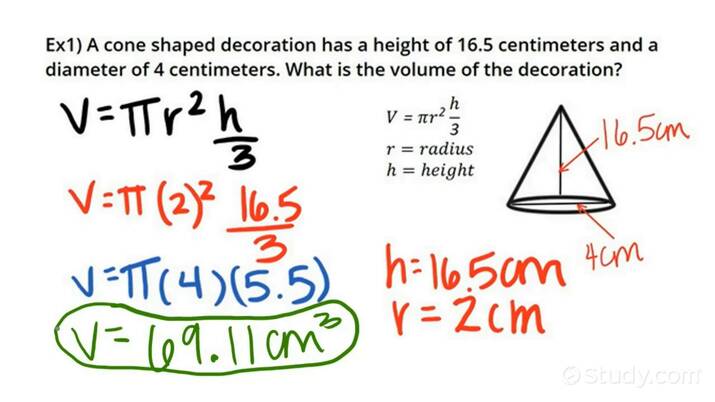 Ex1) A cone shaped decoration has a height of 16.5 centimeters and a
diameter of 4 centimeters. What is the volume of the decoration?
V=πr² h/3
V = πr² h/3
r = radius
h = height
16.5cm
4cm
V=π(2)² 16.5/3
h=16.5cm
r=2cm
V=π(4)(5.5)
V=69.11cm³
Study.com